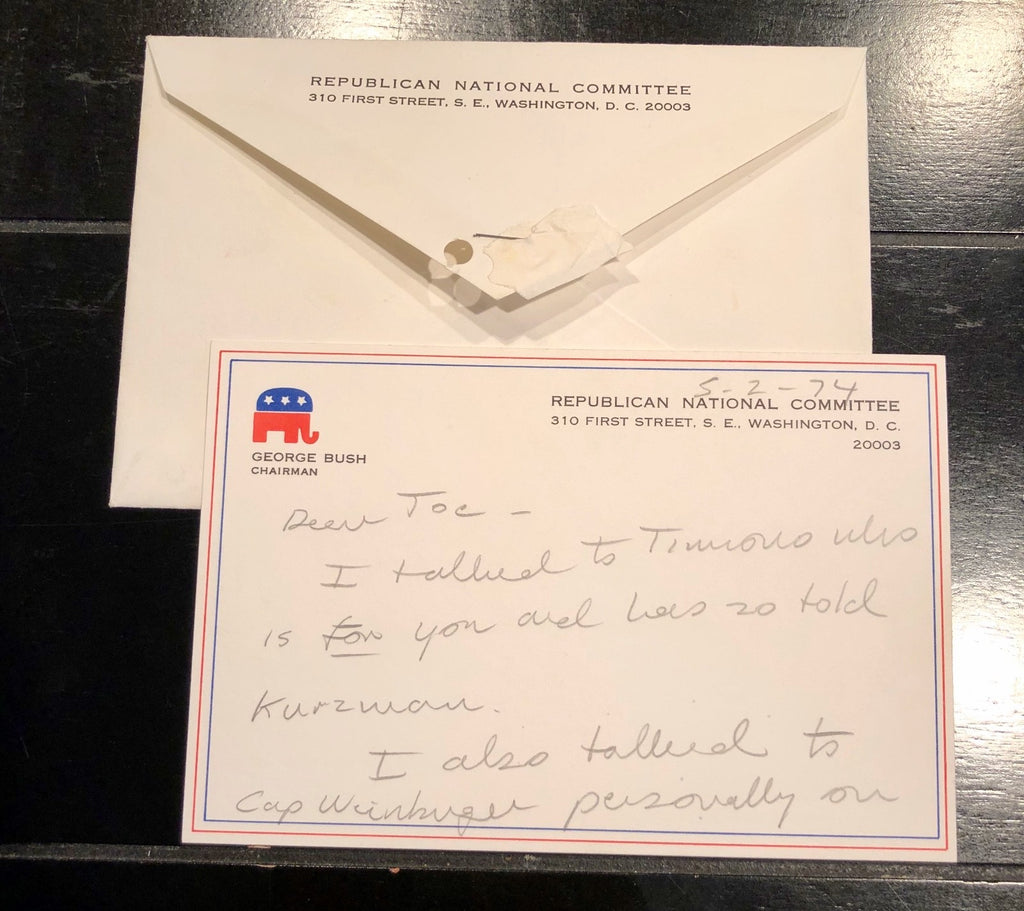 REPUBLICAN NATIONAL COMMITTEE
310 FIRST STREET, S. E., WASHINGTON, D. C. 20003
5-2-74
REPUBLICAN NATIONAL COMMITTEE
310 FIRST STREET, S. E., WASHINGTON, D. C.
20003
GEORGE BUSH
CHAIRMAN
Dear Joe -
I talked to Timmons who
is for you and has so told
Kurzman.
I also talked to
Cap Weinburger personally on